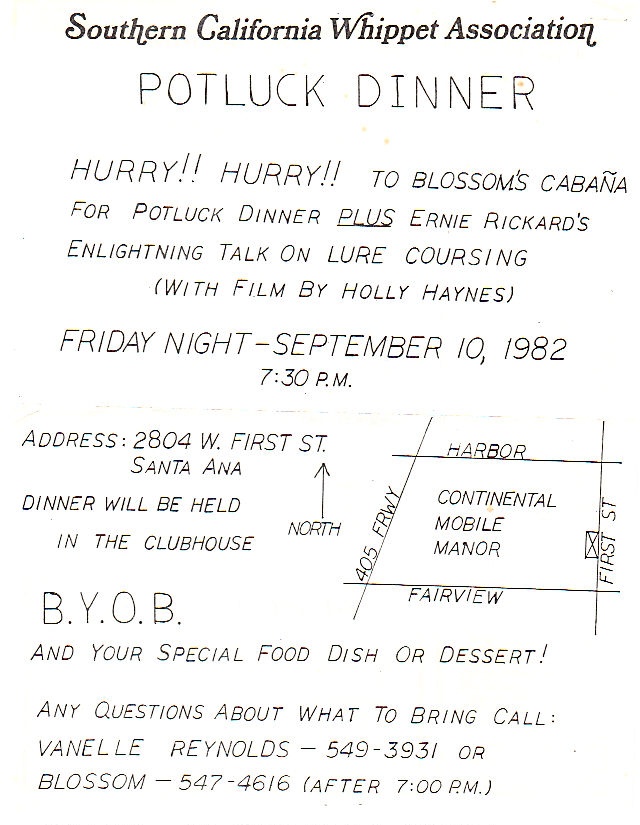 Southern California Whippet Association
POTLUCK DINNER
HURRY!! HURRY!! TO BLOSSOM'S CABAÑA
FOR POTLUCK DINNER PLUS ERNIE RICKARD'S
ENLIGHTNING TALK ON LURE COURSING
(WITH FILM BY HOLLY HAYNES)
FRIDAY NIGHT - SEPTEMBER 10, 1982
7:30 P.M.
ADDRESS: 2804 W. FIRST ST.
SANTA ANA
DINNER WILL BE HELD
IN THE CLUBHOUSE
NORTH
HARBOR
405 FRWY
CONTINENTAL
MOBILE
MANOR
FIRST ST
FAIRVIEW
B.Y.O.B.
AND YOUR SPECIAL FOOD DISH OR DESSERT!
ANY QUESTIONS ABOUT WHAT TO BRING CALL:
VANELLE REYNOLDS - 549-3931 OR
BLOSSOM - 547-4616 (AFTER 7:00 P.M.)